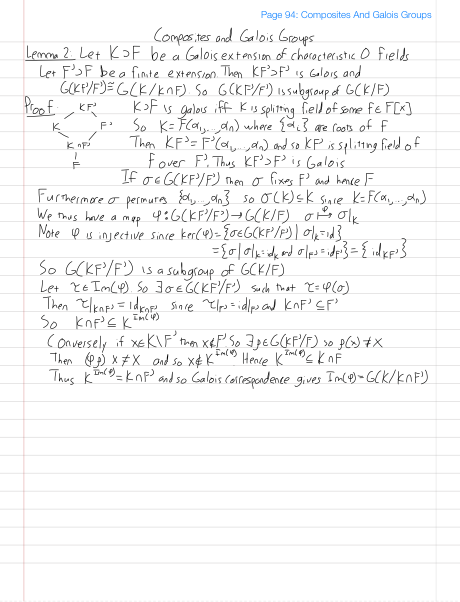 Page 94: Composites And Galois Groups
Composites and Galois Groups
Lemma 2: Let K⊃F be a Galois extension of characteristic 0 fields
Let F'⊃F be a finite extension. Then KF'⊃F' is Galois and
G(KF'/F')≅G(K/K∩F'). So G(KF'/F') is subgroup of G(K/F)
Proof:
KF'
K F'
K∩F'
F
K⊃F is galois iff K is splitting field of some f∈F[x]
So K=F(α₁,...,αₙ) where {αᵢ} are roots of F
Then KF'=F'(α₁,...,αₙ) and so KF' is splitting field of
f over F'. Thus KF'⊃F' is Galois
If σ∈G(KF'/F') then σ fixes F' and hence F
Furthermore σ permutes {α₁,...,αₙ} so σ(K)⊆K since K=F(α₁,...,αₙ)
We thus have a map φ:G(KF'/F')→G(K/F) σ ↦^φ σ|_K
Note φ is injective since ker(φ)={σ∈G(KF'/F') | σ|_K=id}
={σ | σ|_K=id_K and σ|_F'=id_F'}={id_KF'}
So G(KF'/F') is a subgroup of G(K/F)
Let τ∈Im(φ). So ∃σ∈G(KF'/F') such that τ=φ(σ)
Then τ|_K∩F'=id_K∩F' since τ|_F'=id|_F' and K∩F'⊆F'
So K∩F'⊆K^Im(φ)
Conversely if x∈K\F' then x∉F'. So ∃ρ∈G(KF'/F') so ρ(x)≠x
Then (φρ)x≠x and so x∉K^Im(φ). Hence K^Im(φ)⊆K∩F
Thus K^Im(φ)=K∩F' and so Galois correspondence gives Im(φ)=G(K/K∩F')